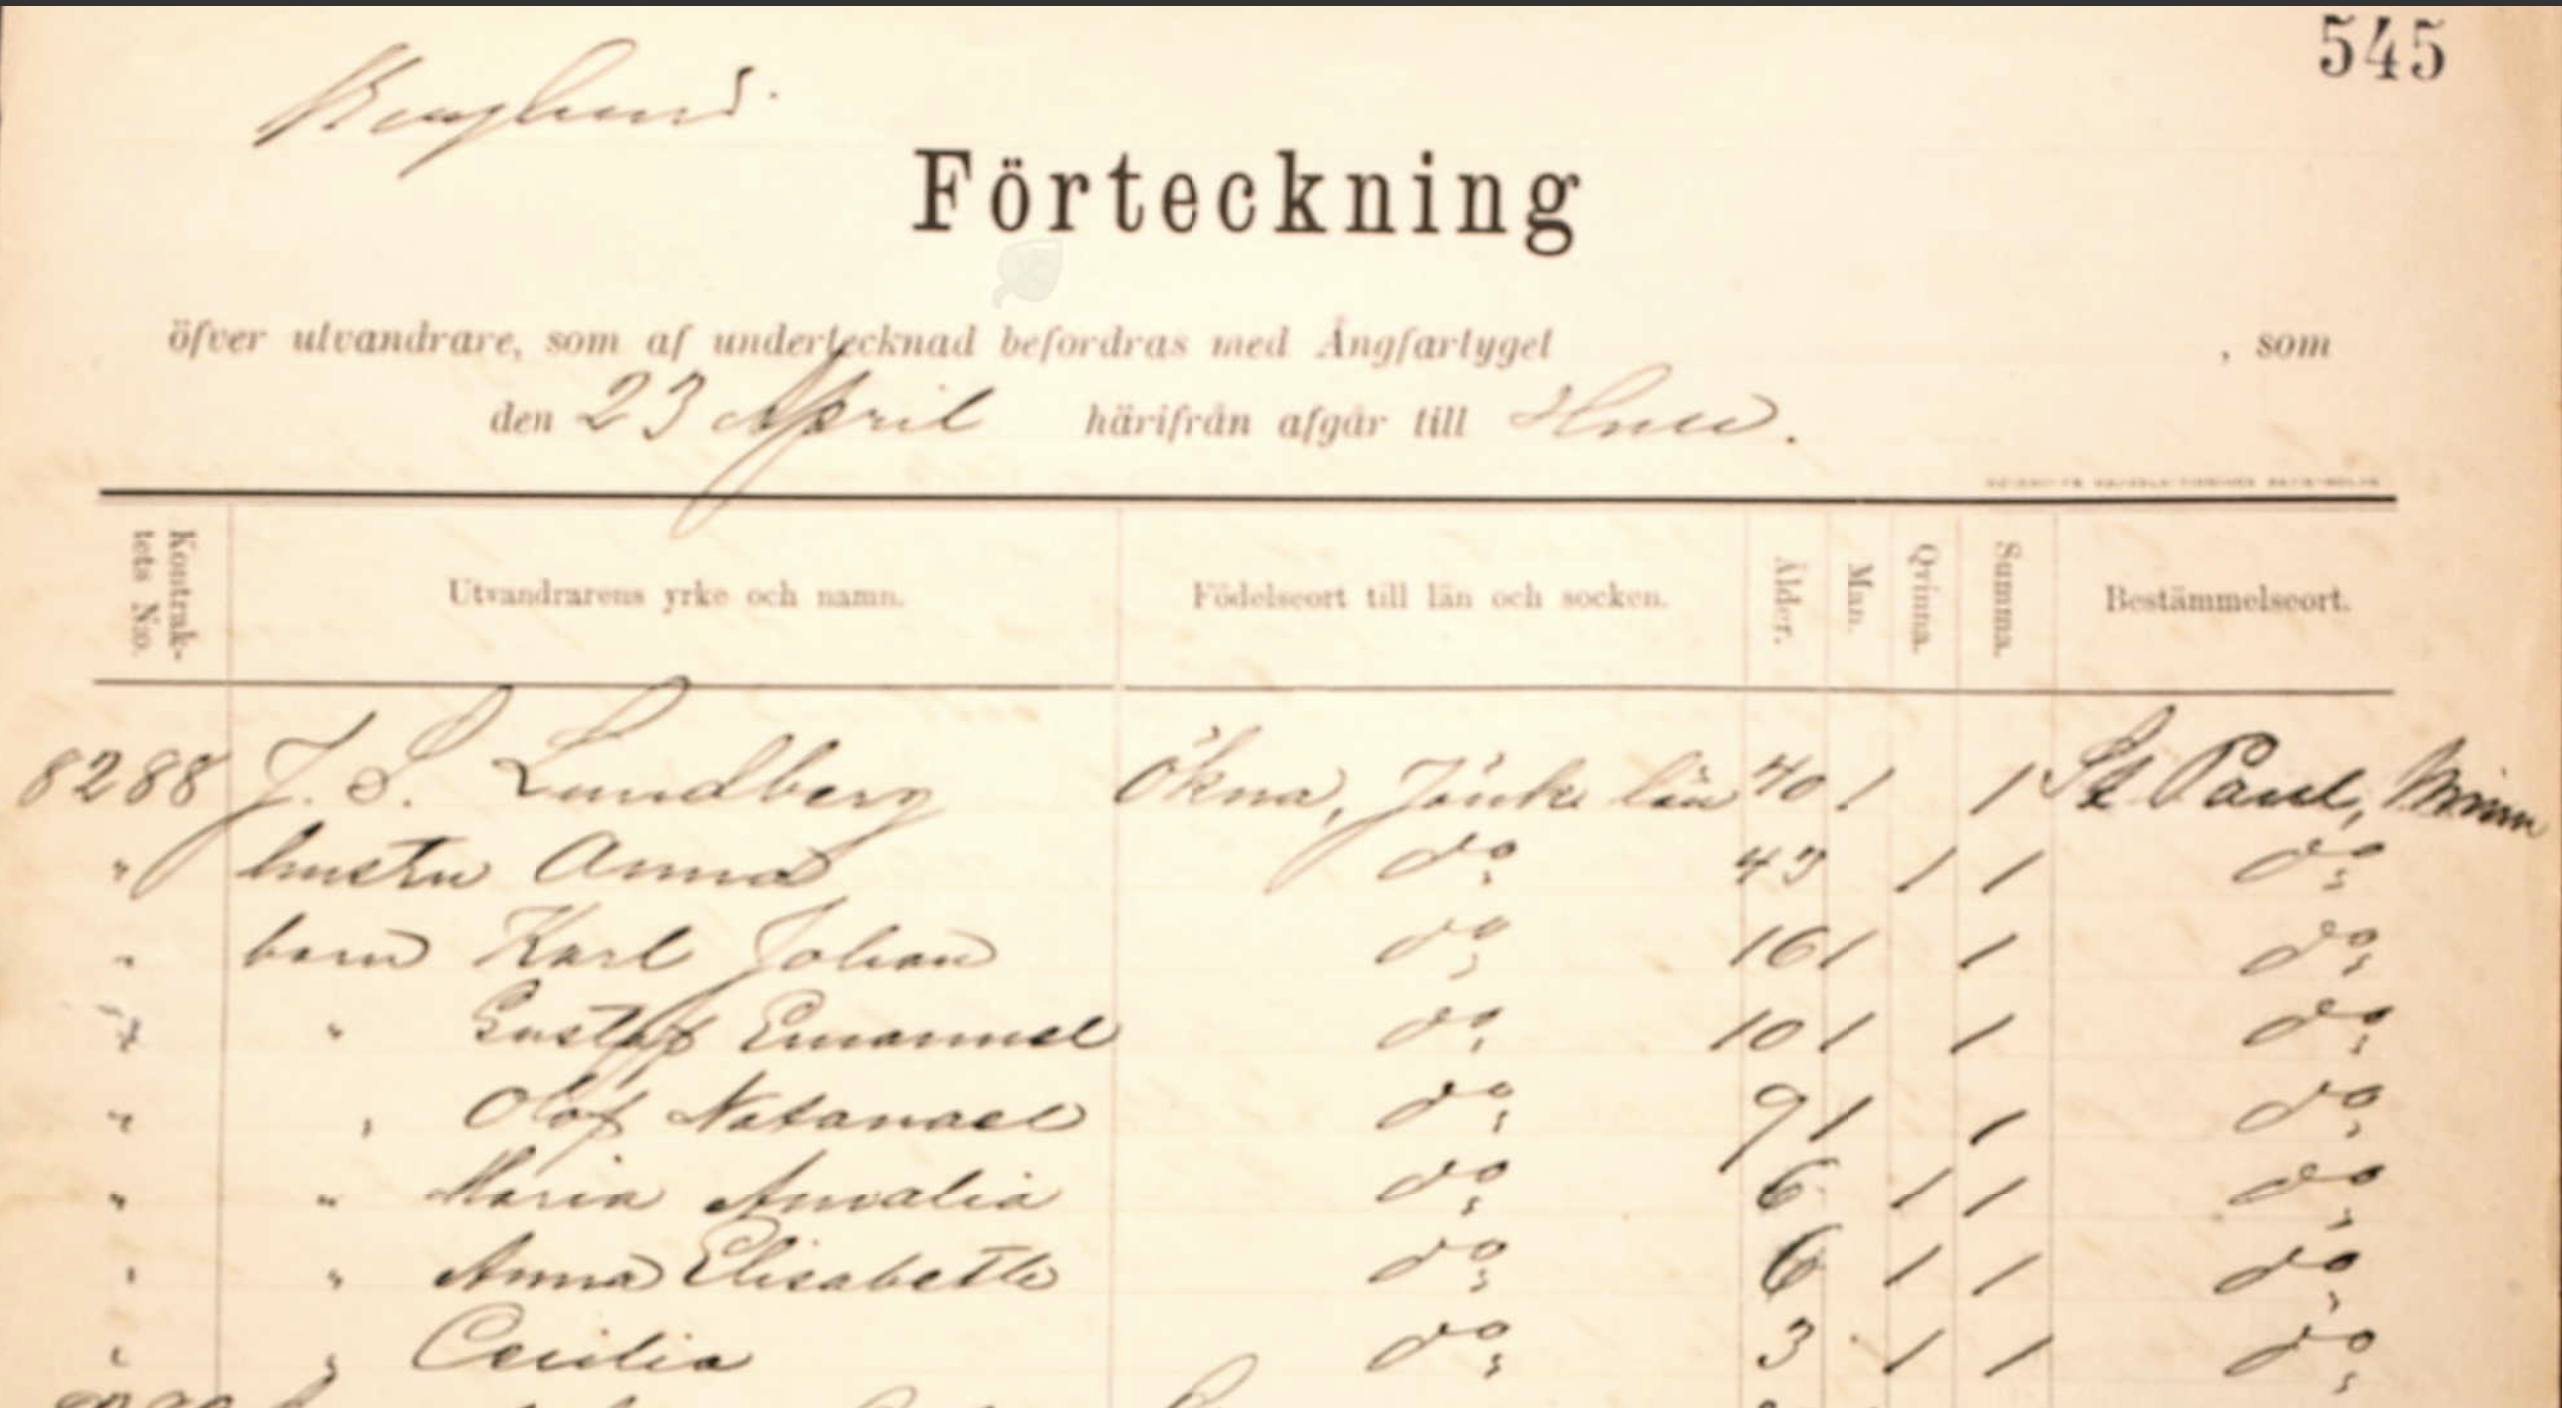 545
Förteckning
öfver utvandrare, som af undertecknad befordras med Ångfartyget , som
den 23 April härifrån afgår till Hull.
Kontrak-tets N:o. Utvandrarens yrke och namn. Födelseort till län och socken. Ålder. Man. Qvinna. Summa. Bestämmelseort.
8288 J. S. Lundberg Ökna, Jönk. län 40 1 1 St Paul, Minn
" hustru Anna do 43 1 1 do
" barn Karl Johan do 16 1 1 do
" " Gustaf Emanuel do 10 1 1 do
" " Olof Natanael do 9 1 1 do
" " Maria Amalia do 6 1 1 do
" " Anna Elisabeth do 6 1 1 do
" " Cecilia do 3 1 1 do